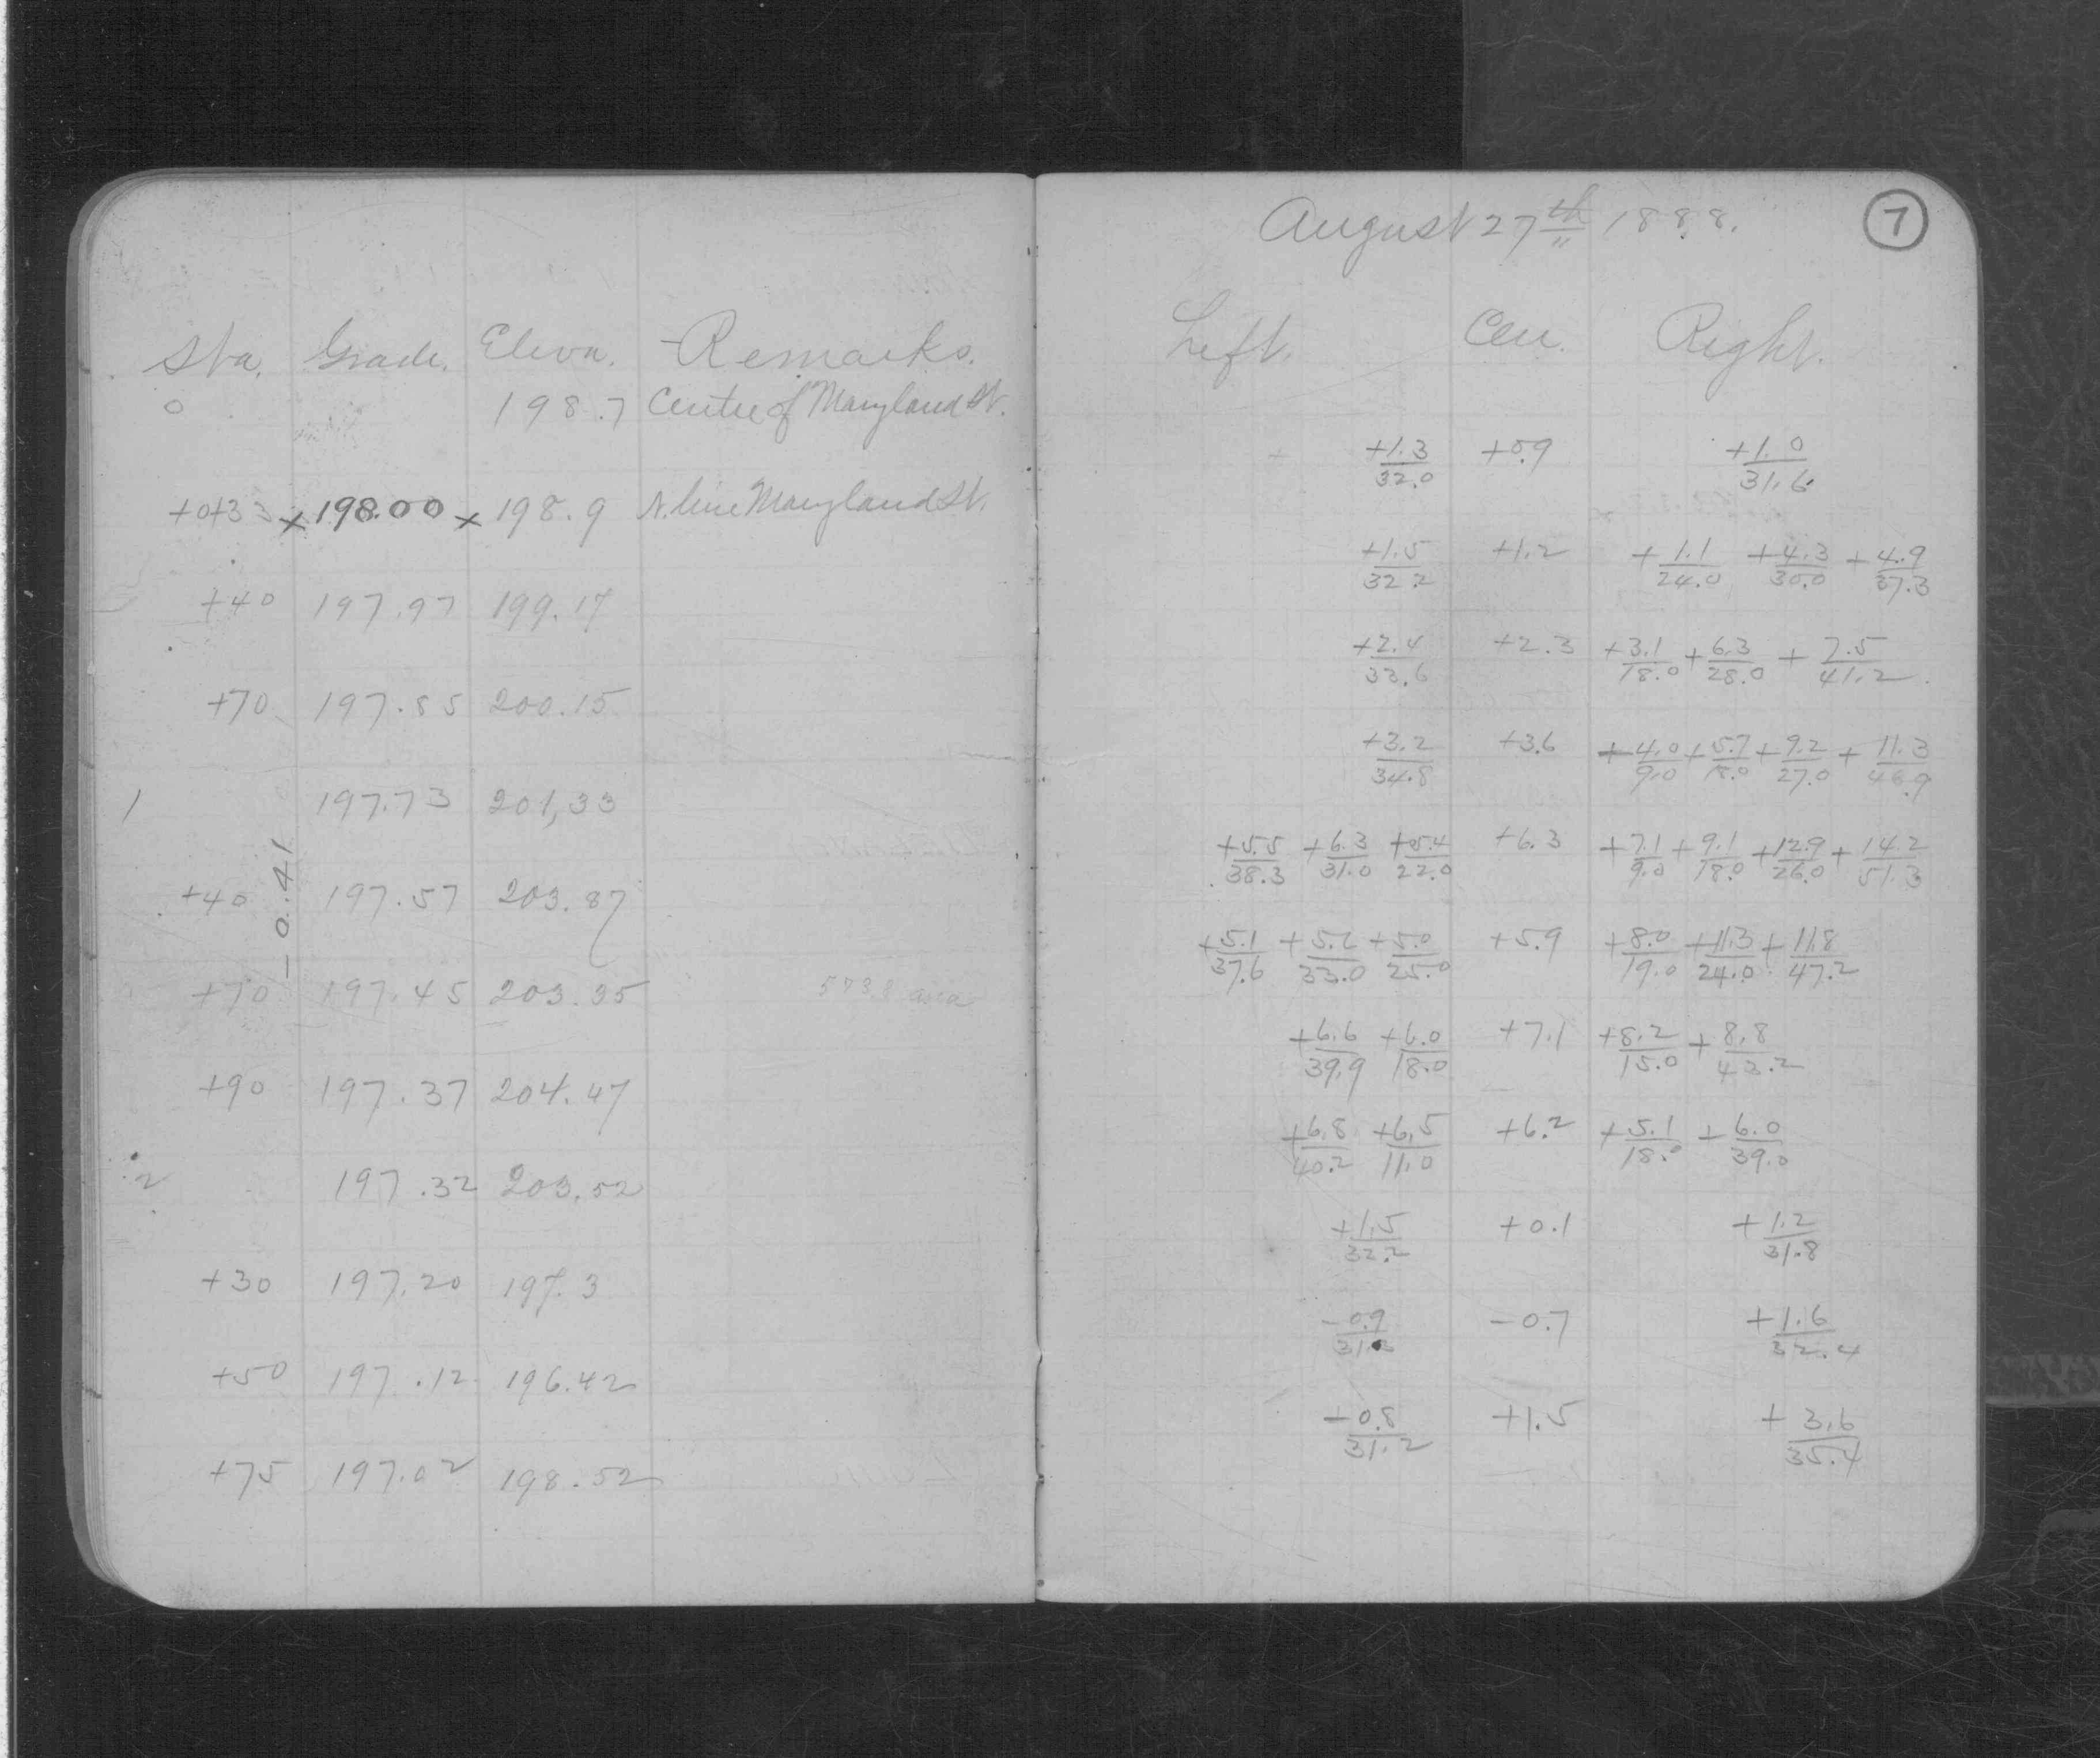 August 27th 1888.
7
Sta. Grade. Eleva. Remarks.
0 198.7 Centre of Maryland St.
+0+33 x 198.00 x 198.9 N. line Maryland St.
+40 197.97 199.17
+70 197.85 200.15
1 197.73 201,33
-0.41
+40 197.57 203.87
+70 197.45 203.35 573.8 area
+90 197.37 204.47
2 197.32 203.52
+30 197.20 197.3
+50 197.12 196.42
+75 197.02 198.52
Left. Cen. Right.
+1.3/32.0 +0.9 +1.0/31.6
+1.5/32.2 +1.2 +1.1/24.0 +4.3/30.0 +4.9/37.3
+2.4/33.6 +2.3 +3.1/18.0 +6.3/28.0 +7.5/41.2
+3.2/34.8 +3.6 +4.0/9.0 +5.7/18.0 +9.2/27.0 +11.3/46.9
+5.5/38.3 +6.3/31.0 +5.4/22.0 +6.3 +7.1/9.0 +9.1/18.0 +12.9/26.0 +14.2/51.3
+5.1/37.6 +5.2/33.0 +5.0/25.0 +5.9 +8.0/19.0 +11.3/24.0 +11.8/47.2
+6.6/39.9 +6.0/18.0 +7.1 +8.2/15.0 +8.8/43.2
+6.8/40.2 +6.5/11.0 +6.2 +5.1/18.0 +6.0/39.0
+1.5/32.2 +0.1 +1.2/31.8
-0.9 -0.7 +1.6/32.4
+0.8/31.2 +1.5 +3.6/35.4